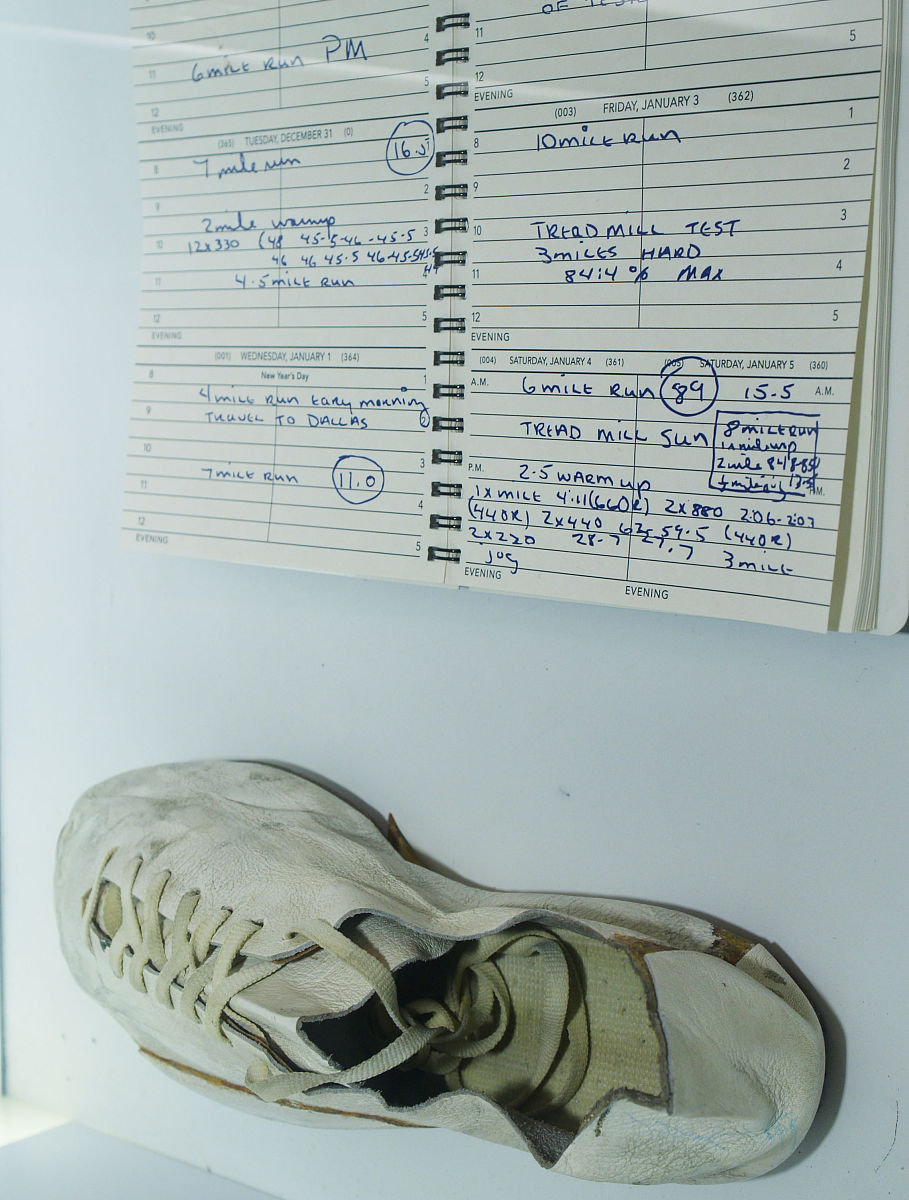 10
4
6 mile run PM
11
5
12
EVENING
(365) TUESDAY, DECEMBER 31 (0)
8
7 mile run
2
9
2 mile warmup
3
10
12x330 (48 45-5-46-45-5
46 46 45.5 46-45-5
11
4.5 mile run
12
5
EVENING
(001) WEDNESDAY, JANUARY 1 (364)
8
New Year's Day
1
4 mile run early morning
9
TRAVEL TO DALLAS
2
10
3
7 mile run
11.0
11
4
12
5
EVENING
OF
11
5
12
EVENING
(003) FRIDAY, JANUARY 3 (362)
1
8
10 mile run
2
9
3
10
TREAD MILL TEST
3 miles HARD
11
84.4 % MAX
4
12
5
EVENING
(004) SATURDAY, JANUARY 4 (361)
(005) SATURDAY, JANUARY 5 (360)
A.M.
6 mile run
89
15.5
A.M.
TREAD MILL SUN
8 mile run
2 mile
P.M.
2.5 WARM up
P.M.
1x mile 4.11 (660R) 2x880 2.06-2.07
(440R) 2x440 62-59.5 (440R)
2x220 28-7 27.7 3 mile
jog
EVENING
EVENING